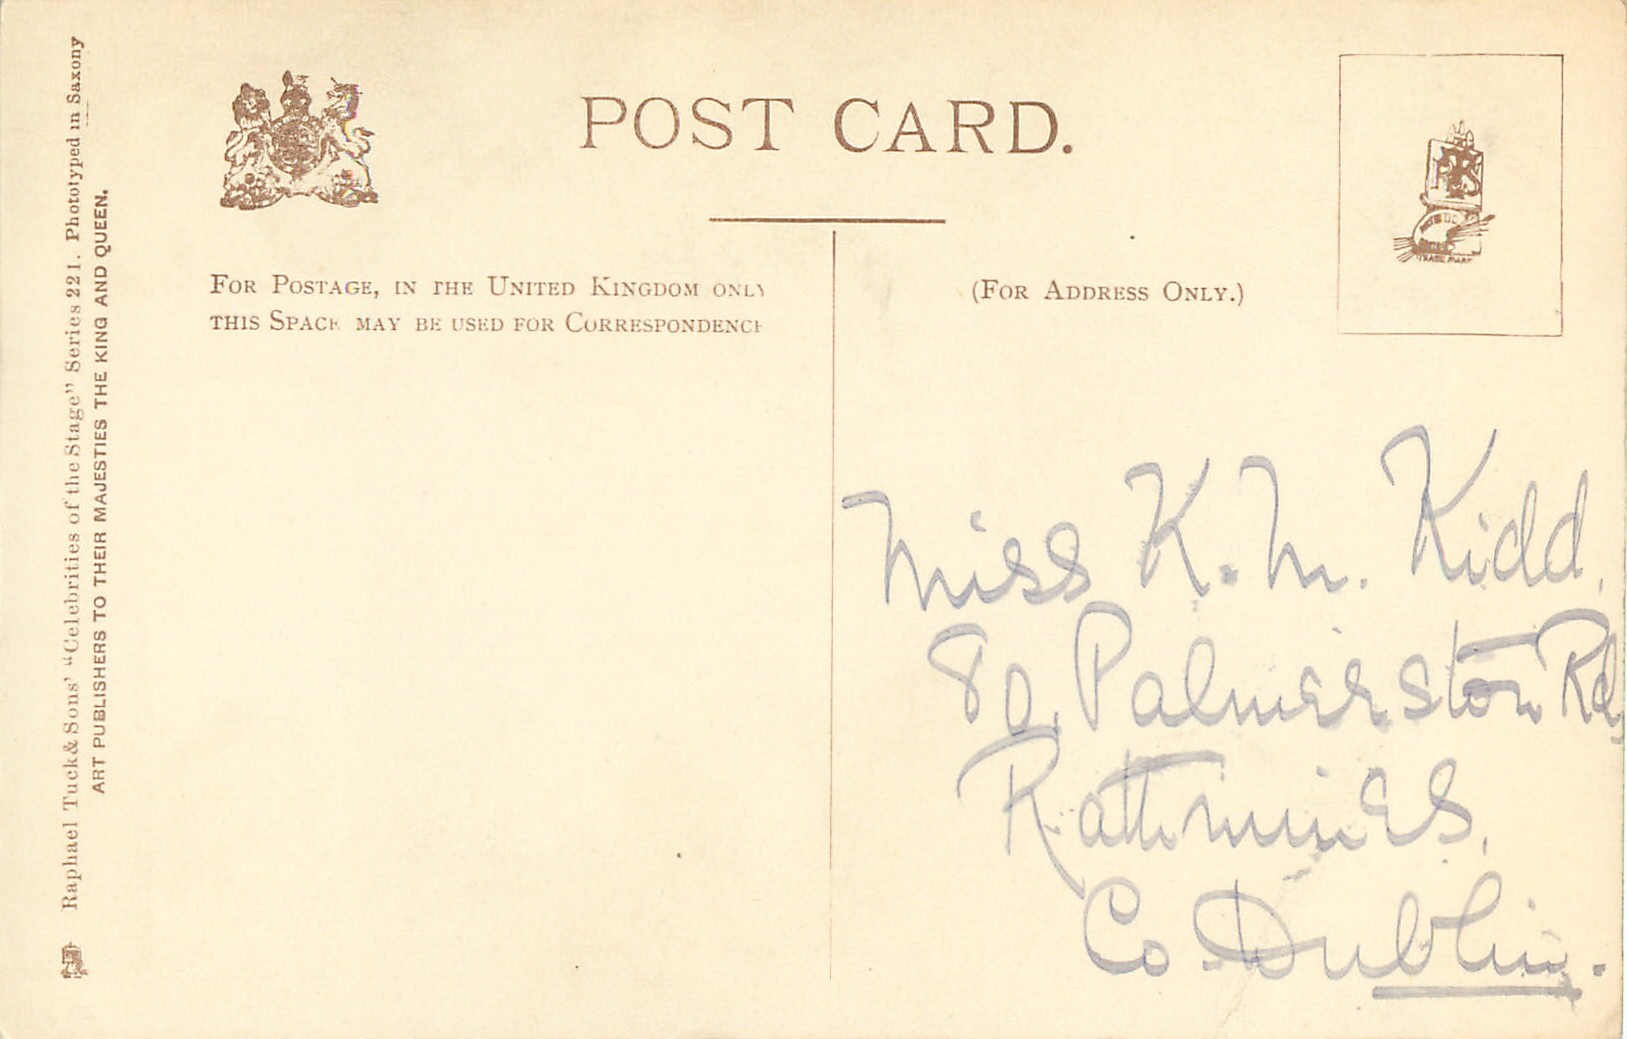 POST CARD.
FOR POSTAGE, IN THE UNITED KINGDOM ONLY
THIS SPACE MAY BE USED FOR CORRESPONDENCE
(FOR ADDRESS ONLY.)
Miss K. M. Kidd,
80, Palmerston Rd,
Rathmines,
Co Dublin.
Raphael Tuck & Sons' "Celebrities of the Stage" Series 221. Phototyped in Saxony
ART PUBLISHERS TO THEIR MAJESTIES THE KING AND QUEEN.
TRADE MARK